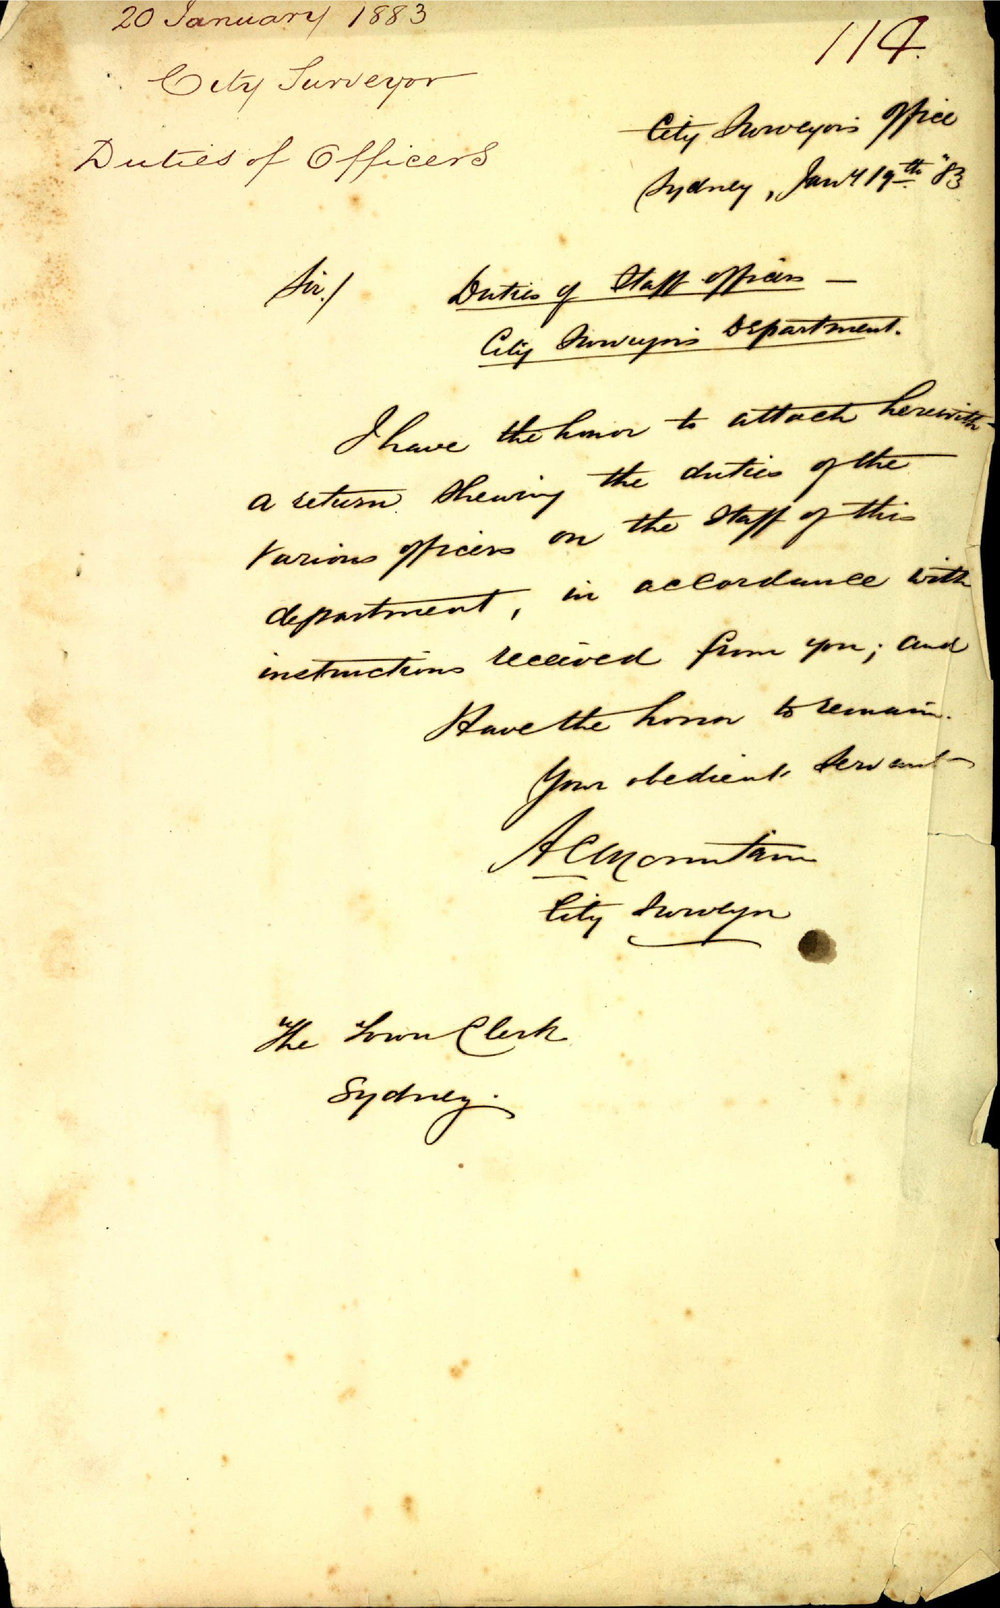 20 January 1883
114.
City Surveyor
Duties of Officers
City Surveyor's Office
Sydney, Jany 19th "83
Sir,/ Duties of Staff officers —
City Surveyor's Department.
I have the honor to attach herewith
a return shewing the duties of the
various officers on the Staff of this
department, in accordance with
instructions received from you; and
Have the honor to remain.
Your obedient Servant
A C Mountain
City Surveyor
The Town Clerk
Sydney.